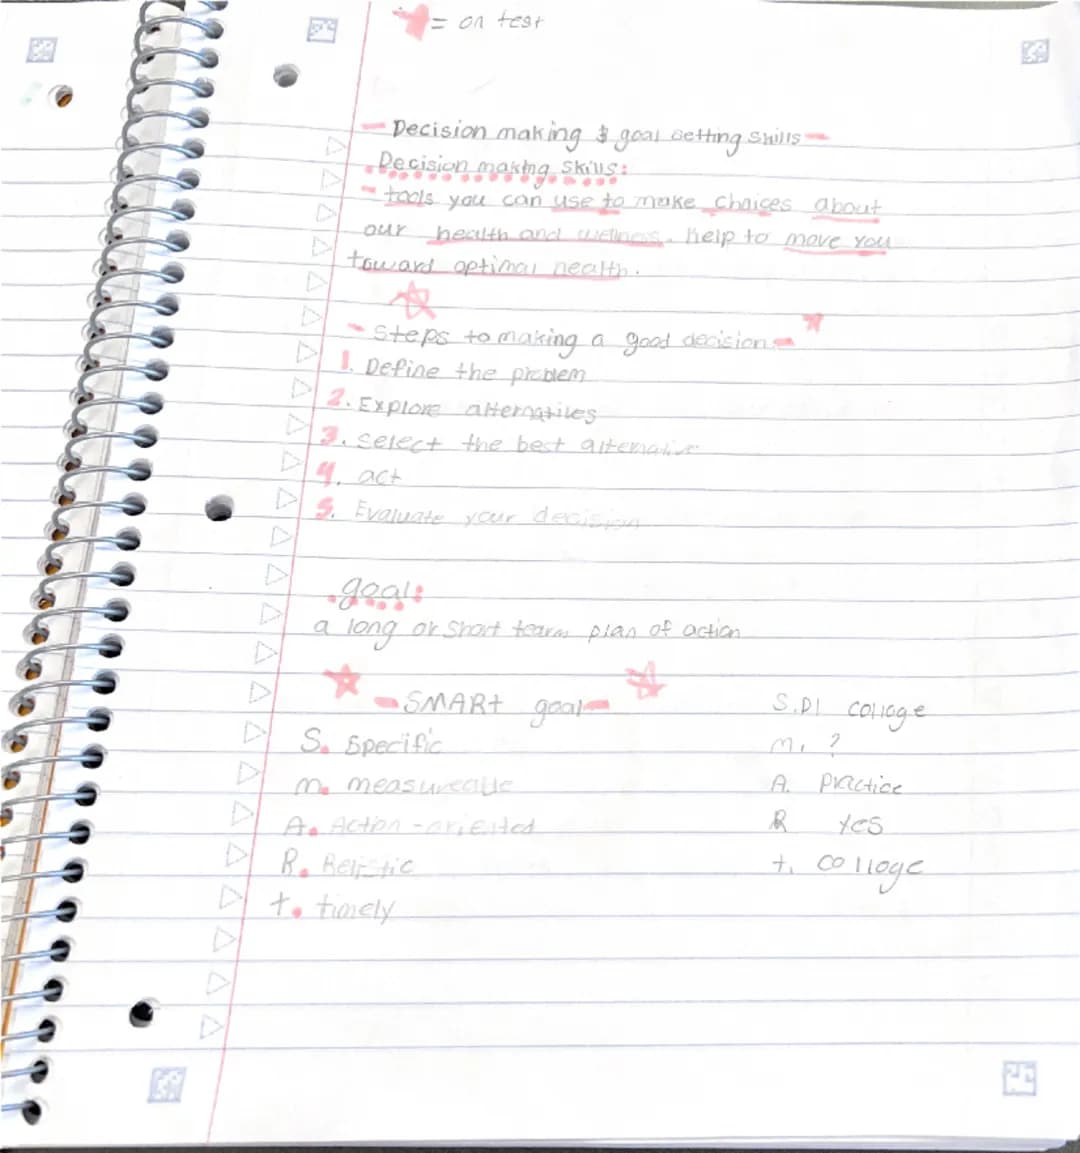 = on test
- Decision making & goal setting skills -
Decision making skills:
- tools you can use to make choices about
our health and wellness. help to move you
toward optimal health.
- Steps to making a good decision -
1. Define the problem
2. Explore alternatives
3. select the best alternative
4. act
5. Evaluate your decision
.goal:
a long or short tearm plan of action
- SMARt goal -
S. Specific
m. measureable
A. Action-oriented
R. Relistic
t. timely
S. D1 college
m. ?
A. Practice
R yes
t. college